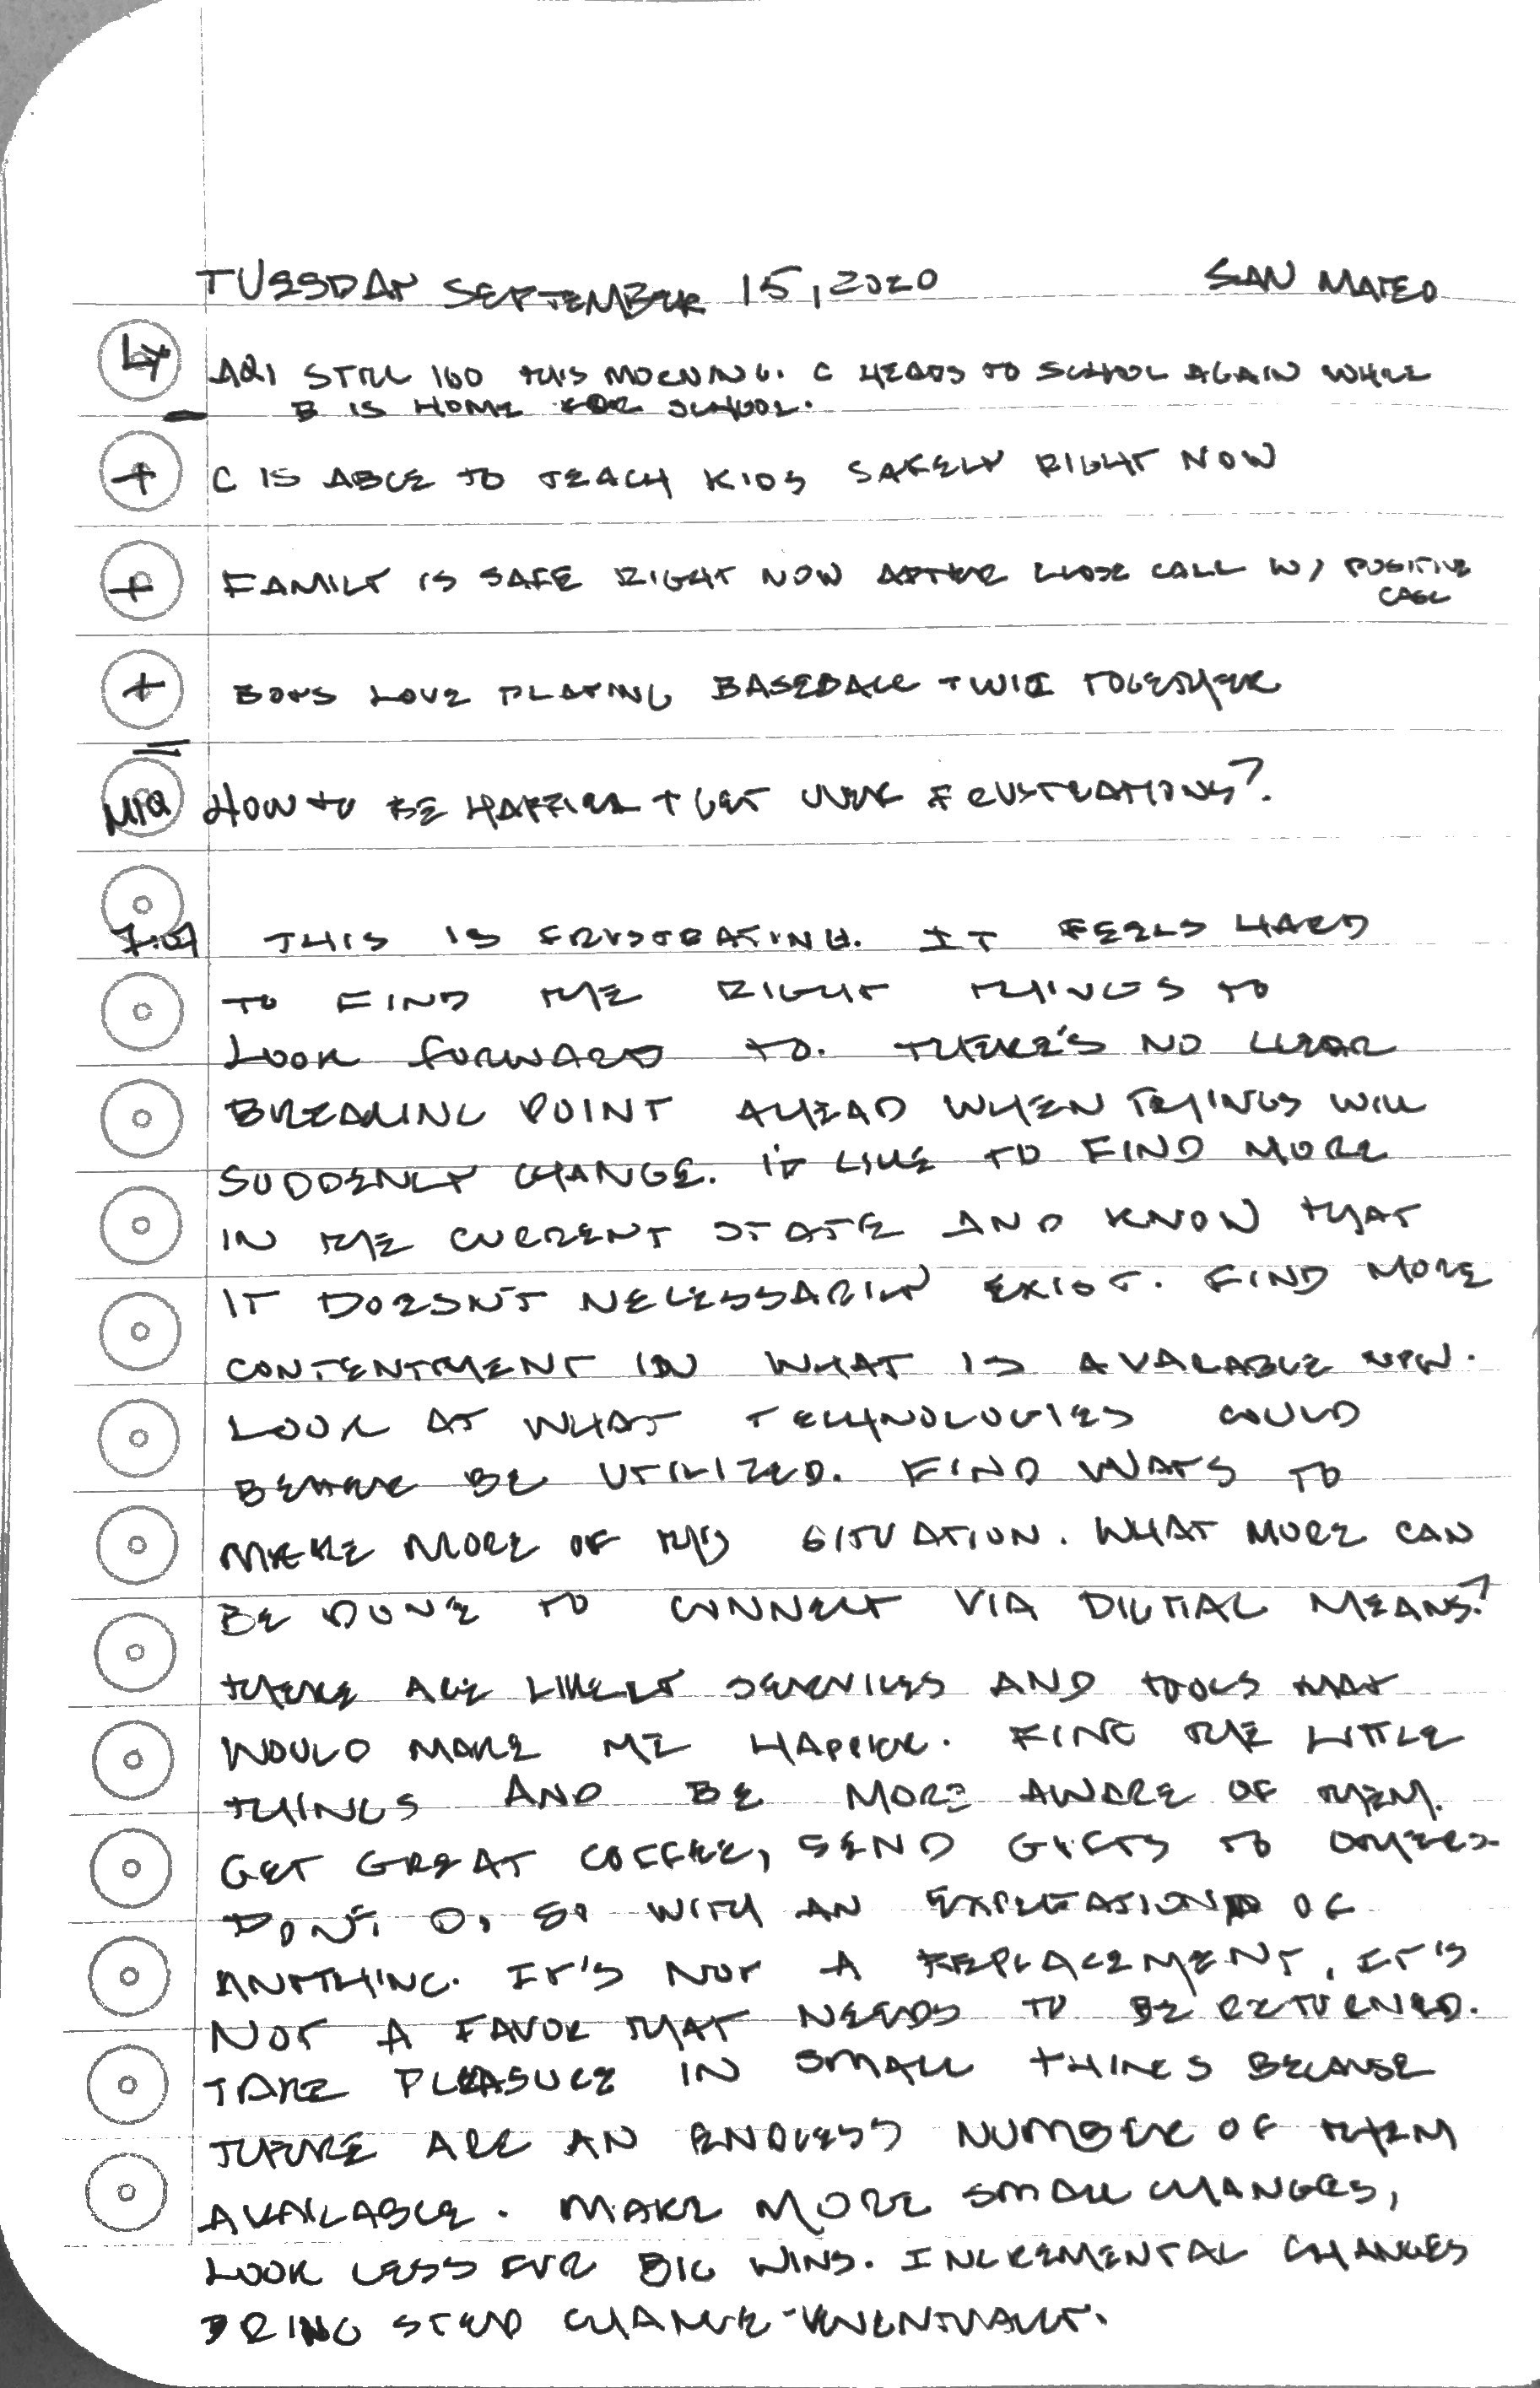 TUESDAY SEPTEMBER 15, 2020 SAN MATEO
LY AQI STILL 160 THIS MORNING. C HEADS TO SCHOOL AGAIN WHILE
B IS HOME FOR SCHOOL.
+ C IS ABLE TO TEACH KIDS SAFELY RIGHT NOW
+ FAMILY IS SAFE RIGHT NOW AFTER CLOSE CALL W/ POSITIVE
CASE
+ BOYS LOVE PLAYING BASEBALL TOGETHER
MIQ HOW TO BE HAPPIER + GET OVER FRUSTRATIONS?
7:07 THIS IS FRUSTRATING. IT FEELS HARD
TO FIND THE RIGHT THINGS TO
LOOK FORWARD TO. THERE'S NO CLEAR
BREAKING POINT AHEAD WHEN THINGS WILL
SUDDENLY CHANGE. I'D LIKE TO FIND MORE
IN THE CURRENT STATE AND KNOW THAT
IT DOESN'T NECESSARILY EXIST. FIND MORE
CONTENTMENT IN WHAT IS AVALABLE NOW.
LOOK AT WHAT TECHNOLOGIES COULD
BETTER BE UTILIZED. FIND WAYS TO
MAKE MORE OF THIS SITUATION. WHAT MORE CAN
BE DONE TO CONNECT VIA DIGITAL MEANS?
THERE ARE LIKELY SERVICES AND TOOLS THAT
WOULD MAKE ME HAPPIER. FIND THE LITTLE
THINGS AND BE MORE AWARE OF THEM.
GET GREAT COFFEE, SEND GIFTS TO OTHERS.
DON'T DO SO WITH AN EXPECTATION OF
ANYTHING. IT'S NOT A REPLACEMENT, IT'S
NOT A FAVOR THAT NEEDS TO BE RETURNED.
TAKE PLEASURE IN SMALL THINGS BECAUSE
THERE ARE AN ENDLESS NUMBER OF THEM
AVAILABLE. MAKE MORE SMALL CHANGES,
LOOK LESS FOR BIG WINS. INCREMENTAL CHANGES
BRING STEP CHANGE EVENTUALLY.